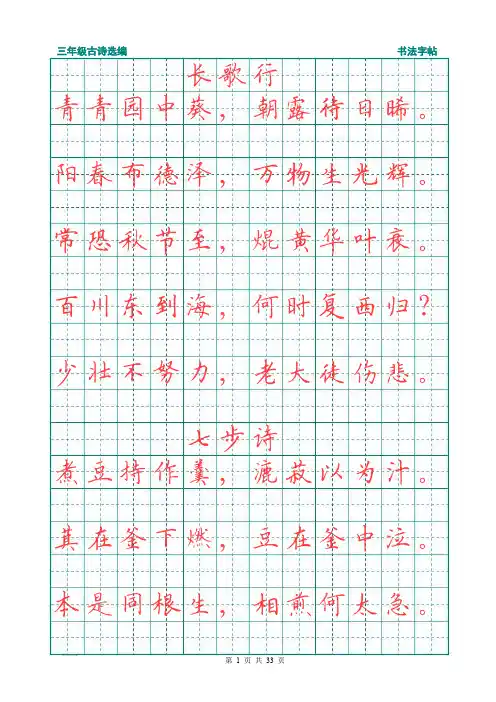 三年级古诗选编 书法字帖
长歌行
青青园中葵，朝露待日晞。
阳春布德泽，万物生光辉。
常恐秋节至，焜黄华叶衰。
百川东到海，何时复西归？
少壮不努力，老大徒伤悲。
七步诗
煮豆持作羹，漉菽以为汁。
萁在釜下燃，豆在釜中泣。
本是同根生，相煎何太急。
第 1 页 共 33 页